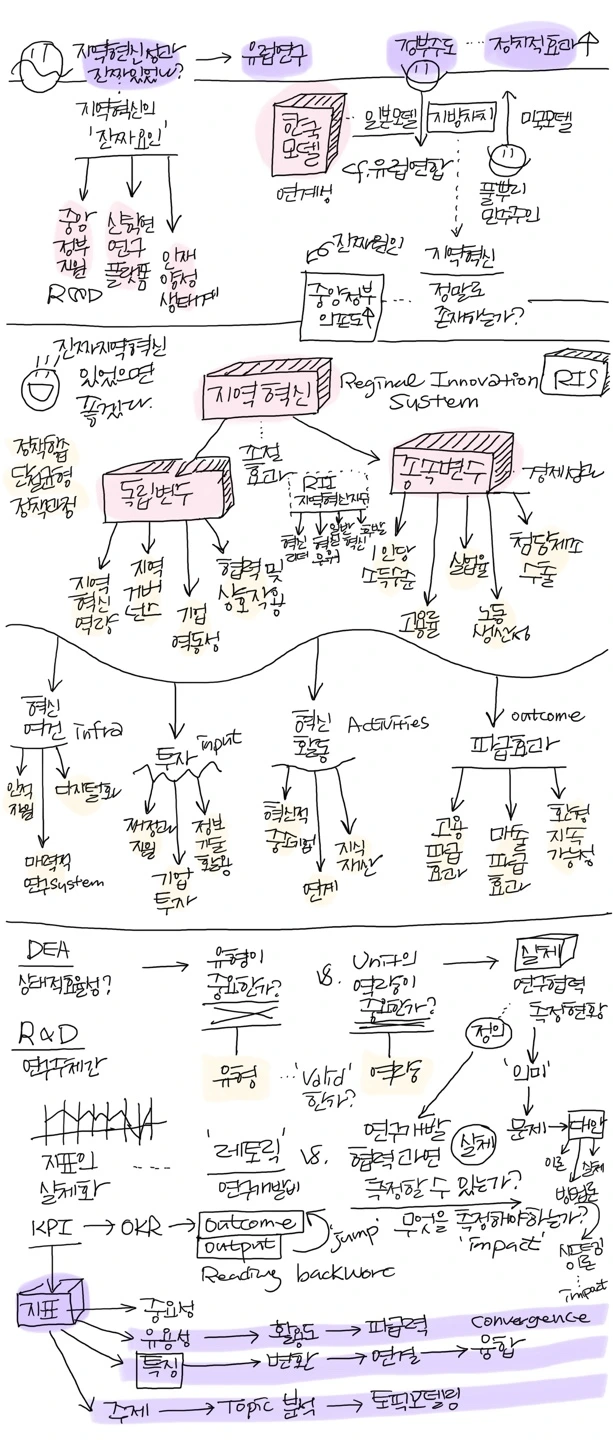 지역혁신성과
진짜있었나?
유럽연구
정부주도
정치적효과
지역혁신의
'진짜요인'
한국
모델
연계성
일본모델
지방자치
미국모델
cf. 유럽연합
풀뿌리
민주주의
중앙
정부
지원
R&D
산학연
연구
플랫폼
인재
양성
생태계
진짜원인
중앙정부
의존도
지역혁신
정말로
존재하는가?
진짜지역혁신
있었으면
좋겠다.
지역혁신
Reginal Innovation
System
RIS
정책학습
단절균형
정책과정
독립변수
조절
효과
RII
종속변수
경제성과
지역
혁신
역량
지역
거버
넌스
기업
역동성
협력 및
상호작용
1인당
소득수준
고용률
실업율
노동
생산성
첨단제조
수출
혁신
여건
infra
투자
input
혁신
활동
Activities
outcome
파급효과
인적
자원
디지털화
매력적
연구System
재정과
지원
기업
투자
정보
기술
활용
혁신적
중소기업
연계
지식
재산
고용
파급
효과
매출
파급
효과
환경
지속
가능성
DEA
상대적효율성?
유형이
중요한가?
vs.
Unit의
역량이
중요한가?
실체
연구협력
측정현황
R&D
연구주체간
유형
'Valid'
한가?
역량
정의
'의미'
문제
대안
이론
실체
방법론
지표의
실체화
'레토릭'
연구개발비
vs.
연구개발
협력과연
측정할 수 있는가?
실체
KPI
OKR
outcome
output
'jump'
무엇을 측정해야하는가?
'impact'
Reading backwarc
impact
지표
중요성
유용성
활용도
파급력
convergence
특징
변환
연결
융합
주제
Topic 분석
토픽모델링